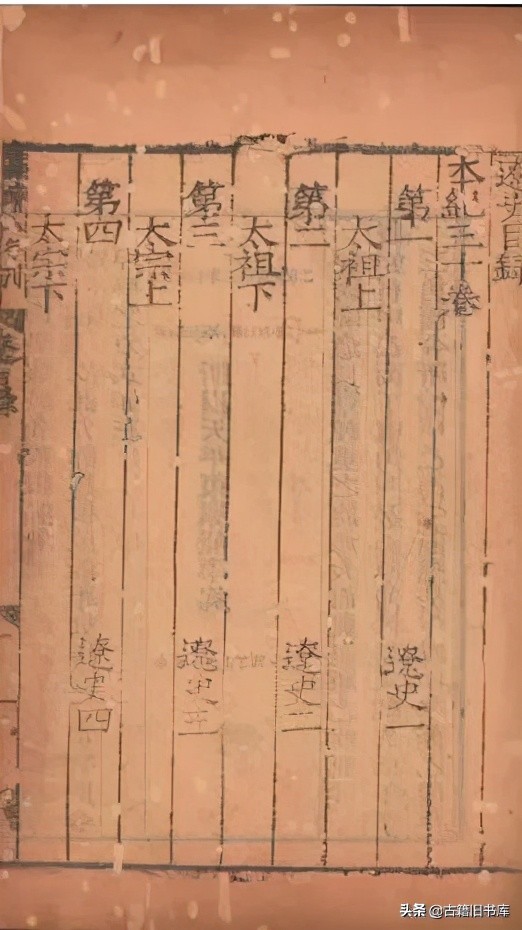 遼史目錄
本紀三十卷
第一
遼史一
太祖上
第二
遼史二
太祖下
第三
遼史三
太宗上
第四
遼史四
太宗下
头条 @古籍旧书库